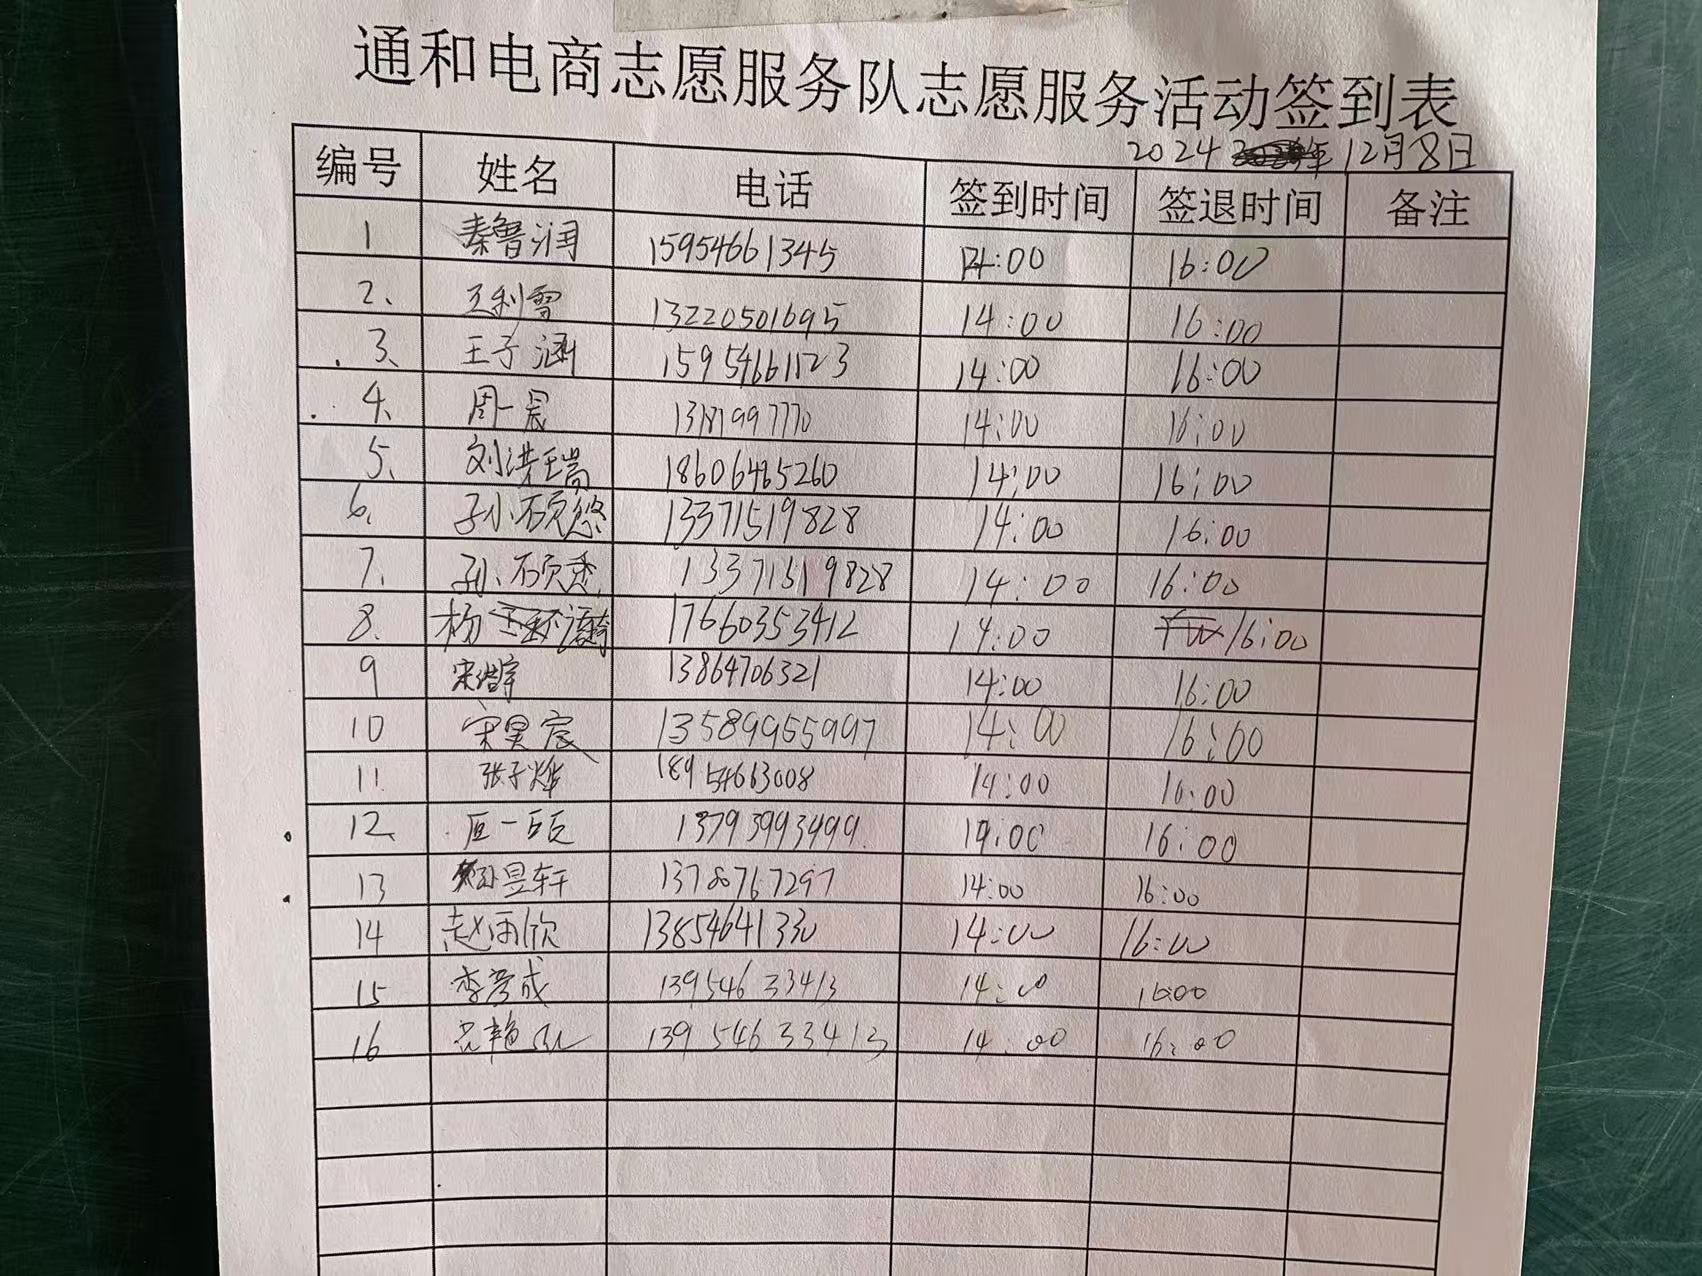 通和电商志愿服务队志愿服务活动签到表
2024 年12月8日
编号 姓名 电话 签到时间 签退时间 备注
1 秦鲁润 15954661345 14:00 16:00
2、 王利雪 13220501695 14:00 16:00
3、 王子涵 15954661123 14:00 16:00
4、 周一宸 1381997770 14:00 16:00
5、 刘洪瑞 18606465260 14:00 16:00
6、 孙硕悠 13371519828 14:00 16:00
7、 孙硕秀 13371519828 14:00 16:00
8、 杨 17660353412 14:00 16:00
9 宋 13864706321 14:00 16:00
10 宋昊宸 13589955997 14:00 16:00
11 张子烨 18954663008 14:00 16:00
12、 一 13793993499 14:00 16:00
13 孙昱轩 1378767297 14:00 16:00
14 赵雨欣 13854641330 14:00 16:00
15 李彦成 13954633413 14:00 16:00
16 13954633413 14:00 16:00